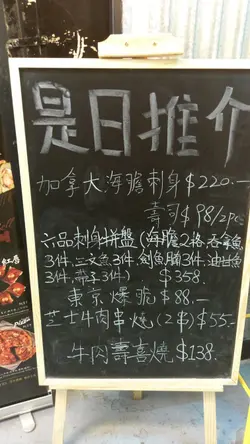 是日推介
加拿大海膽刺身$220.-
壽司$98/2pcs
六品刺身拼盤(海膽2格,吞拿魚
3件,三文魚3件,劍魚腩3件,油甘魚
3件,帶子3件) $358.
東京爆脆$88.-
芝士牛肉串燒(2串)$55.-
牛肉壽喜燒$138.